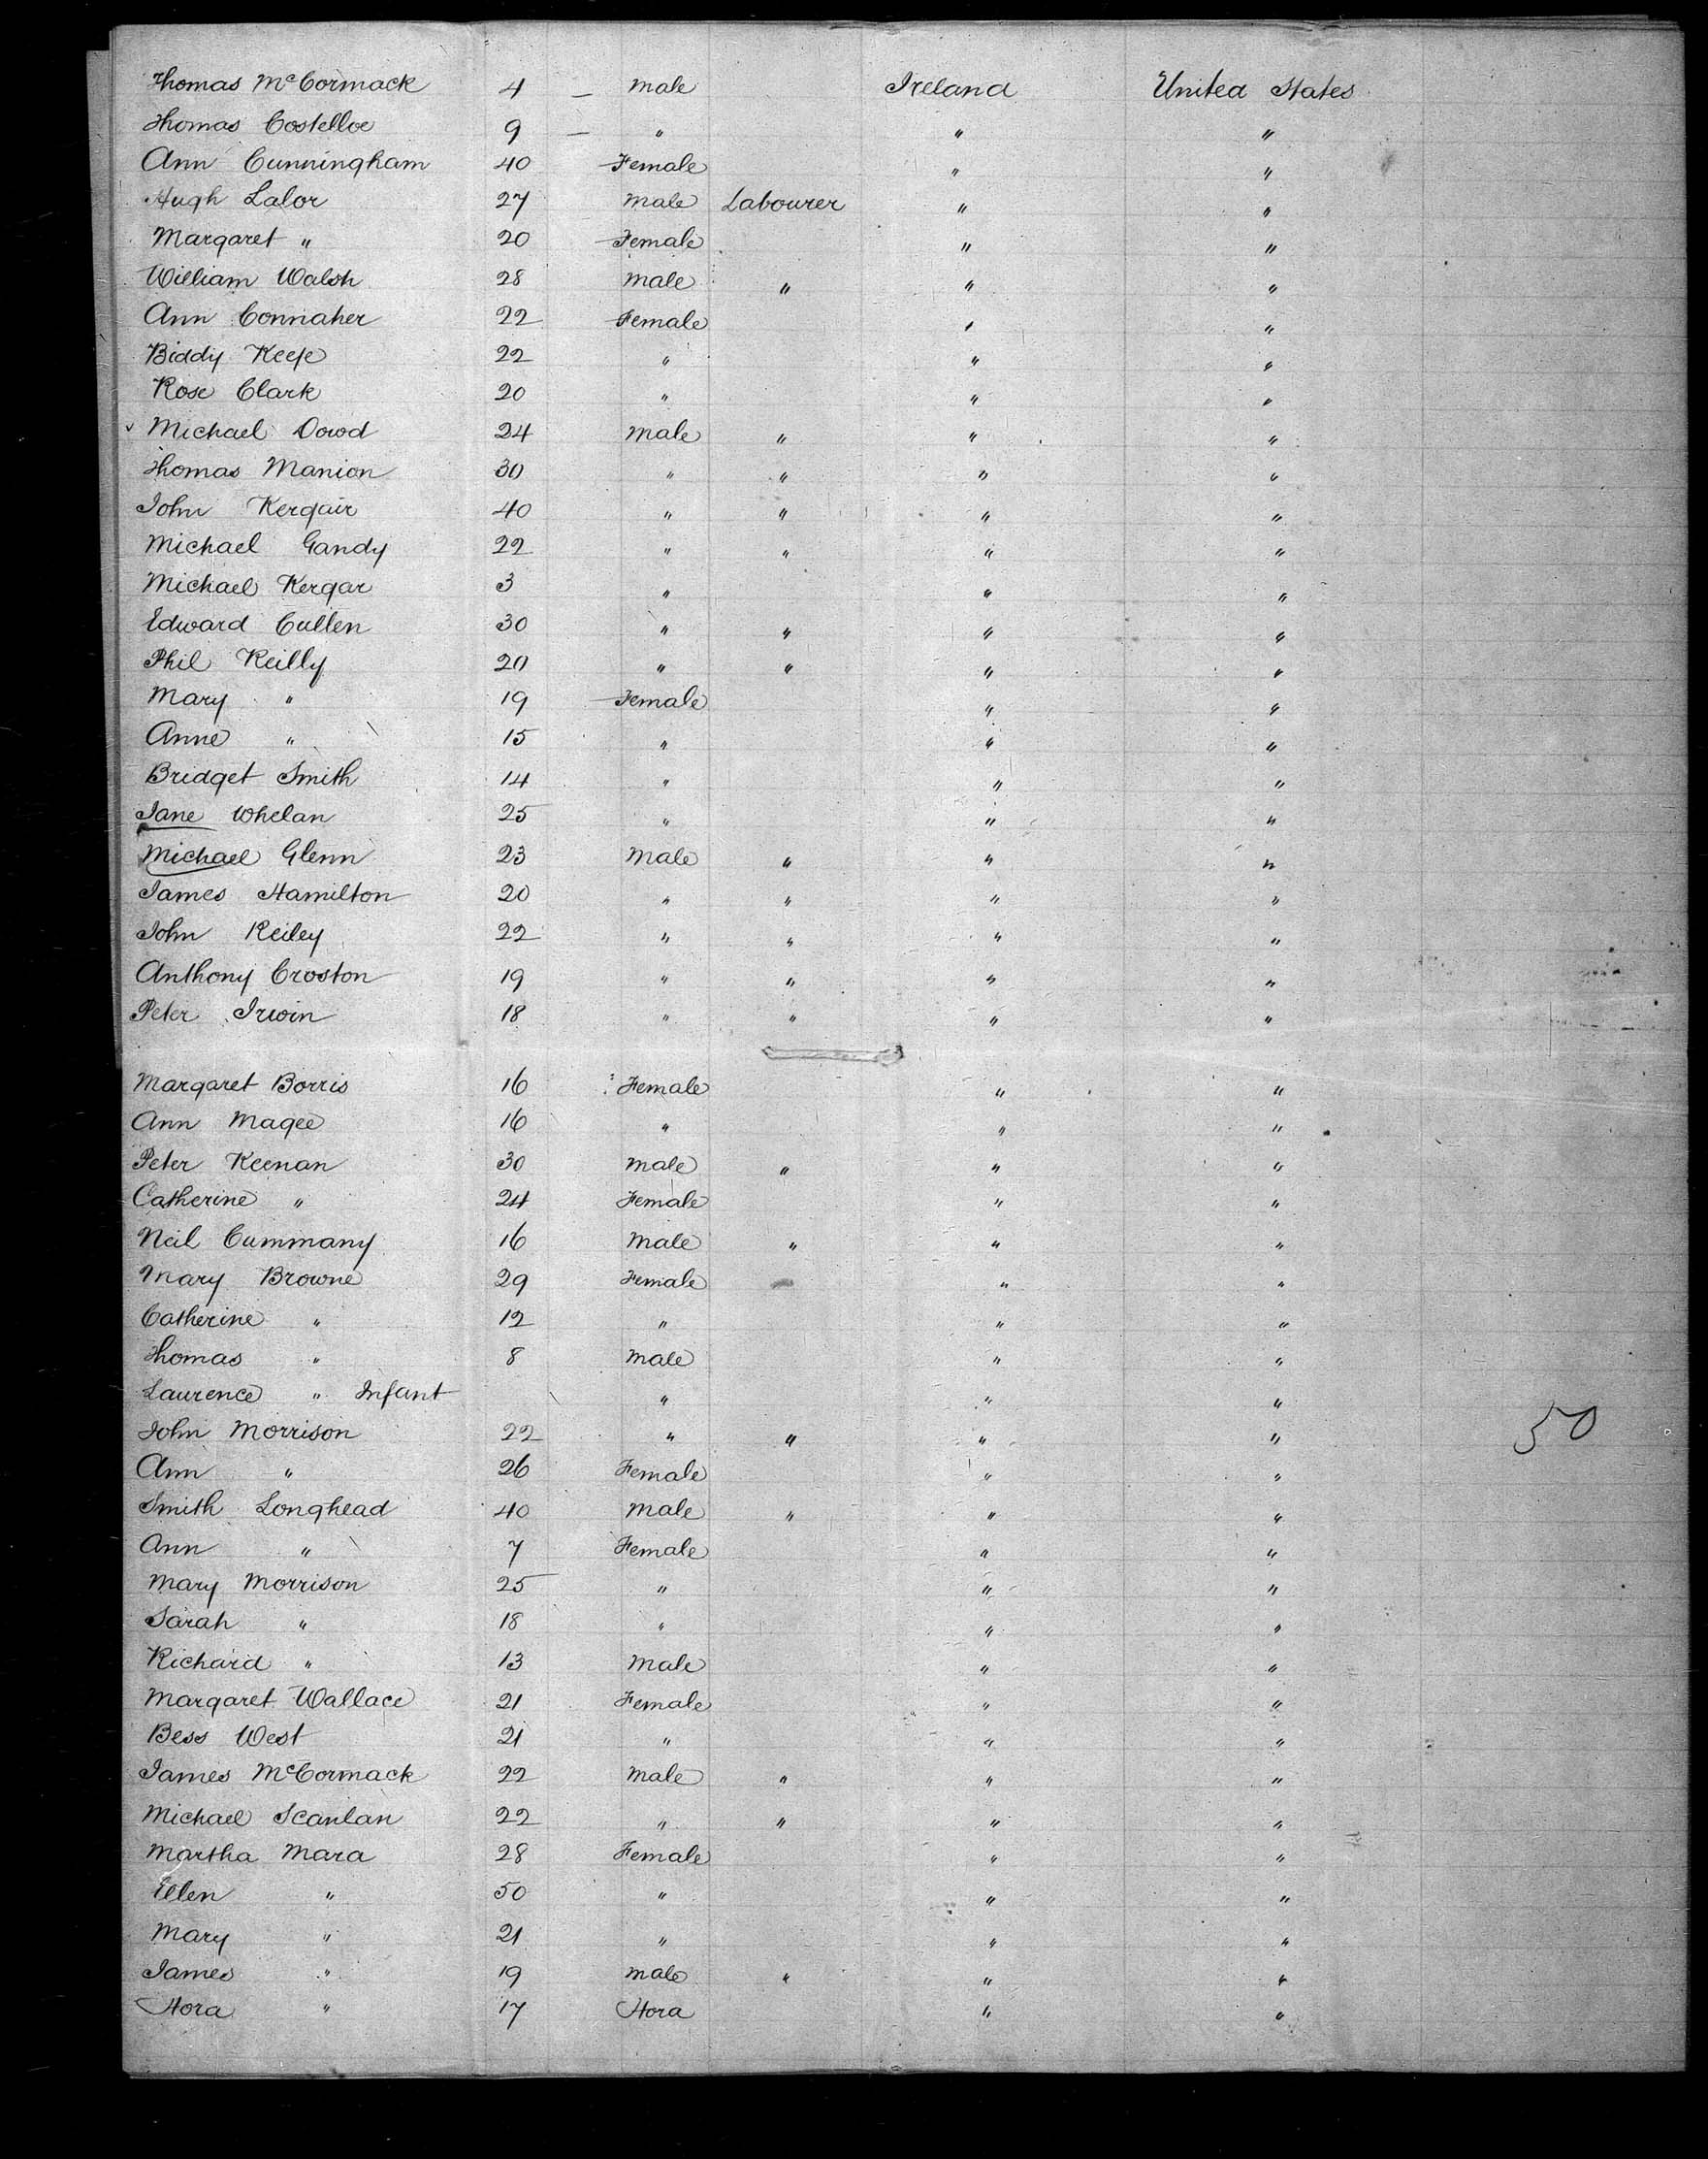 Thomas McCormack 4 — Male Ireland United States
Thomas Costelloe 9 — " " "
Ann Cunningham 40 Female " "
Hugh Lalor 27 Male Labourer " "
Margaret " 20 Female " "
William Walsh 28 Male " " "
Ann Connaher 22 Female " "
Biddy Keefe 22 " " "
Rose Clark 20 " " "
Michael Dowd 24 Male " " "
Thomas Manion 30 " " " "
John Kergair 40 " " " "
Michael Gandy 22 " " " "
Michael Kergar 3 " " "
Edward Cullen 30 " " " "
Phil Reilly 20 " " " "
Mary " 19 Female " "
Anne " 15 " " "
Bridget Smith 14 " " "
Jane Whelan 25 " " "
Michael Glenn 23 Male " " "
James Hamilton 20 " " " "
John Reiley 22 " " " "
Anthony Croston 19 " " " "
Peter Irwin 18 " " " "
Margaret Borris 16 Female " "
Ann Magee 16 " " "
Peter Keenan 30 Male " " "
Catherine " 24 Female " "
Neil Cummany 16 Male " " "
Mary Browne 29 Female " "
Catherine " 12 " " "
Thomas " 8 Male " "
Laurence " Infant " " "
John Morrison 22 " " " " 50
Ann " 26 Female " "
Smith Longhead 40 Male " " "
Ann " 7 Female " "
Mary Morrison 25 " " "
Sarah " 18 " " "
Richard " 13 Male " "
Margaret Wallace 21 Female " "
Bess West 21 " " "
James McCormack 22 Male " " "
Michael Scanlan 22 " " " "
Martha Mara 28 Female " "
Ellen " 50 " " "
Mary " 21 " " "
James " 19 Male " " "
Hora " 17 Hora " "